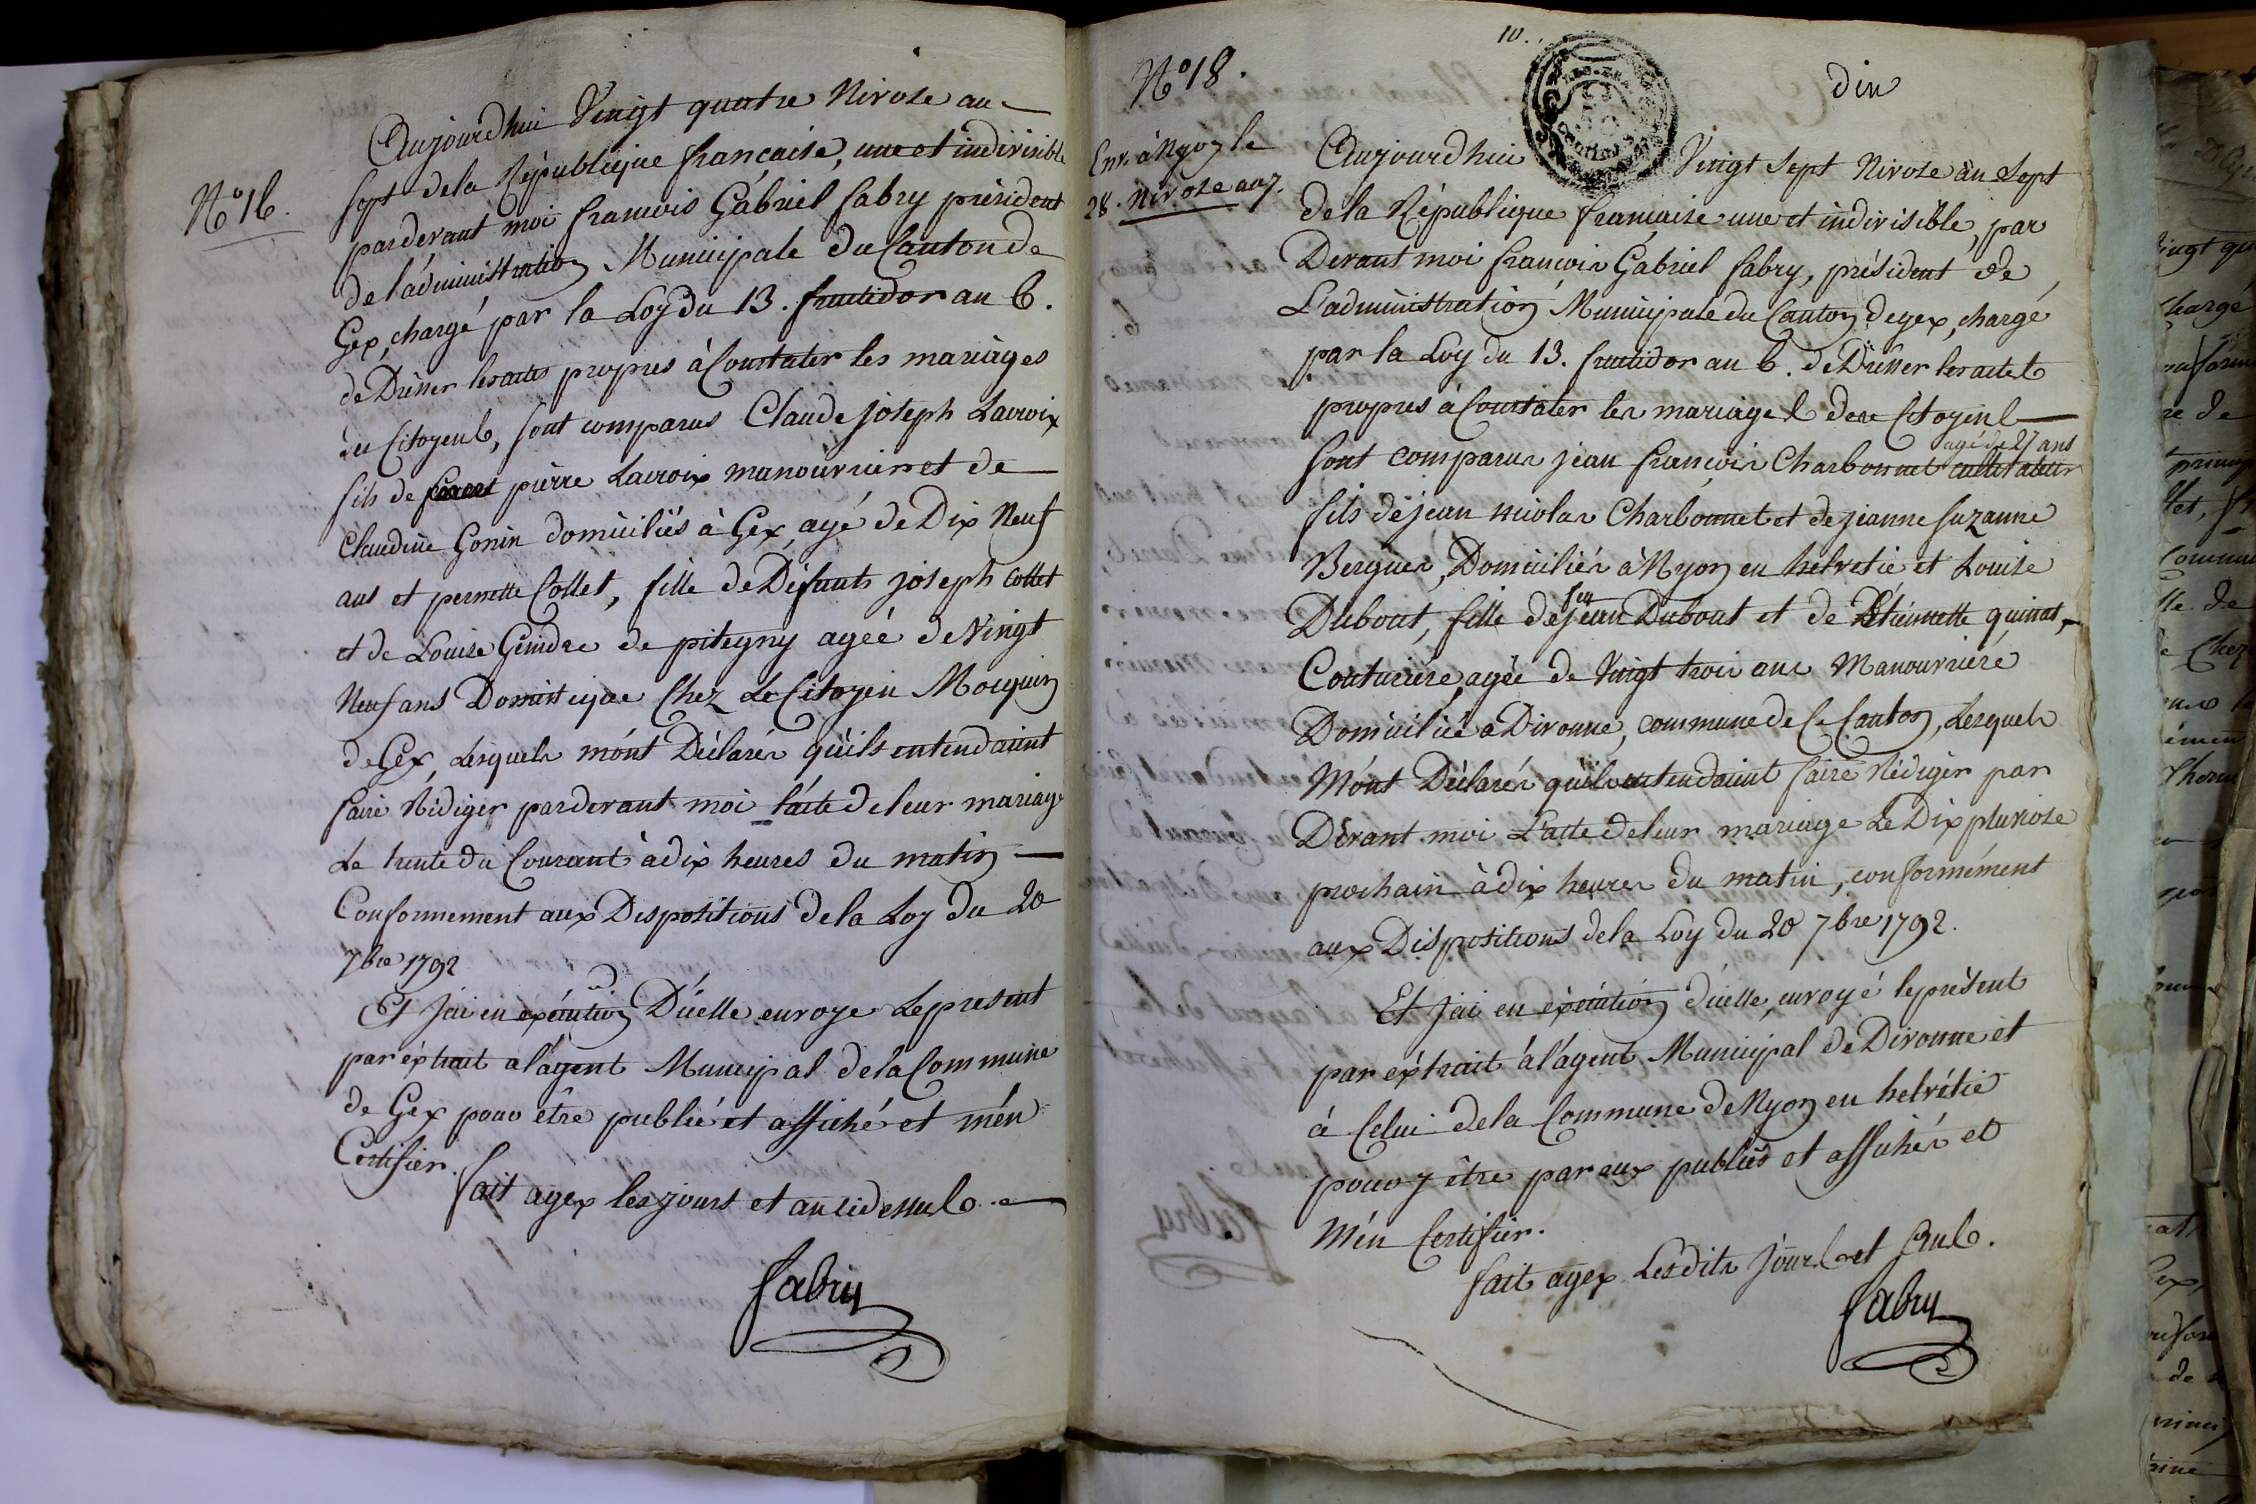 Aujourdhui Vingt quatre Nivose an
N° 16. sept dela République francaise, une et indivisible
pardevant moi francois Gabriel fabry président
de l'administration Municipale du Canton de
Gex, chargé par la Loy du 13. fructidor an 6.
de Drésser les actes propres à Constater les mariages
des Citoyens, sont comparus Claude joseph Lacroix
fils de pierre Lacroix manouvrier et de
Claudine Gonin domiciliés à Gex, agé de Dix Neuf
ans et pernette Collet, fille de Défunts joseph Collet
et de Louise Gindre de pitegny agée de Vingt
Neuf ans Domestique Chez Le Citoyen Mouquin
de Gex, Lesquels m'ont Déclarés qu'ils entendaient
faire Rédiger pardevant moi l'acte de leur mariage
Le trente du Courant à dix heures du matin
Conformement aux Dispositions de la Loy du 20
7bre 1792
Et j'ai en éxécution D'icelle envoye le présent
par éxtrait a l'agent Municipal de la Commune
de Gex pour être publié et affiché et m'én
Certifier.
fait a gex les jours et an cidessus.
fabry
10.
N° 18.
dix
Env. à Nyon le
28. Nivose an 7.
Aujourdhui Vingt Sept Nivose an Sept
de la République française une et indivisible, par
Devant moi francois Gabriel fabry, président de
L'administration Municipale du Canton de gex, chargé
par la Loy du 13. fructidor an 6. de Drésser les actes
propres à Constater les mariages des Citoyens
agé de 27 ans
sont comparus jean françois Charbonnet cultivateur
fils de jean nicolas Charbonnet et de jeanne suzanne
Berguer, Domiciliés à Nyon en helvetie et Louise
feu
Dubout, fille de jean Dubout et de Etiennette quinat,
Couturière, agée de Vingt trois ans Manouvriere
Domiciliée a Divonne, commune de Ce Canton, Lesquels
M'ont Déclarés qu'ils entendaient faire Rédiger par
Dévant moi L'acte de leur mariage Le Dix pluviose
prochain à dix heures du matin, conformément
aux Dispositions de la Loy du 20 7bre 1792.
Et j'ai en éxécution d'icelle, envoyé le présent
par éxtrait à l'agent Municipal de Divonne et
à Celui de la Commune de Nyon en helvétie
pour y être par eux publiés et affichés et
M'én Certifier.
fait a gex Lesdits jours et ans.
fabry